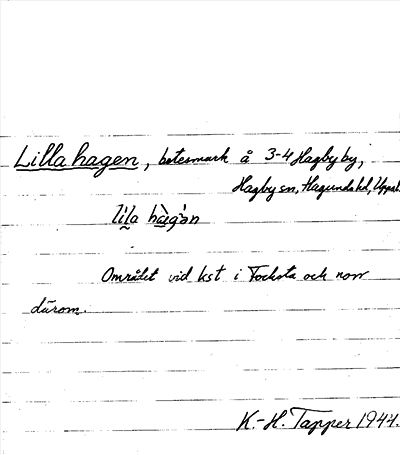 Lilla hagen, betesmark å 3-4 Hagby by,
Hagby sn, Hagunda hd, Uppsal
lìla hàgən
Området vid kst i Focksta och norr
därom.
K.-H. Tapper 1944.